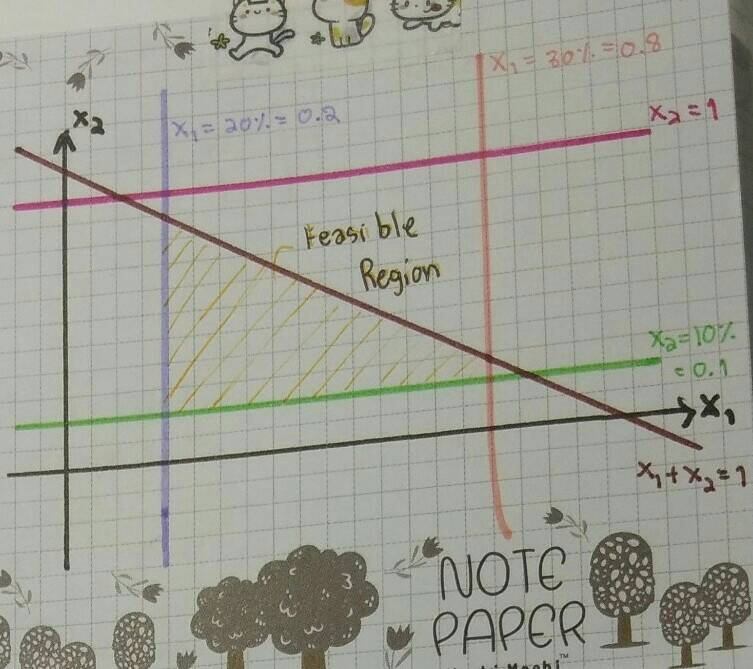 x₁ = 30% = 0.8
x₂ = 1
x₂
x₁ = 20% = 0.2
Feasible
Region
x₂ = 10%
= 0.1
x₁
x₁ + x₂ = 1
NOTE
PAPER